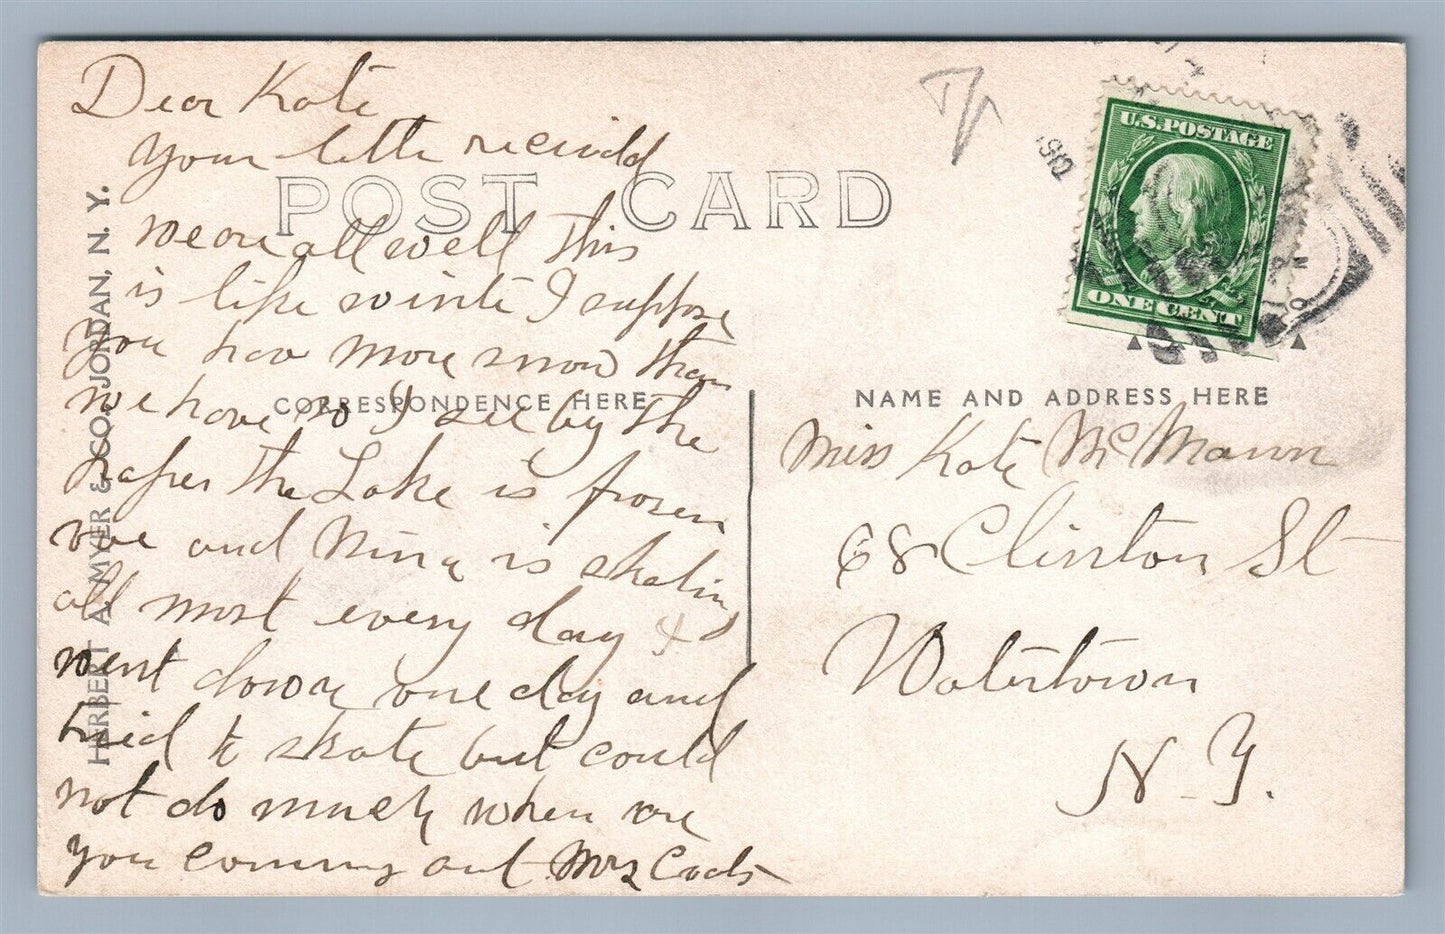 Dear Kate
Your letter recieved
we are all well this
is like winter I suppose
you hav more snow than
we have so I see by the
paper the Lake is frozen
and Nina is skating
all most every day &
went down one day and
tried to skate but could
not do much when are
you comming out Mrs
POST CARD
CORRESPONDENCE HERE
HERBERT A. MYER & CO., JORDAN, N. Y.
U.S. POSTAGE
ONE CENT
1910
NAME AND ADDRESS HERE
Miss Kate McMann
68 Clinton St
Watertown
N-Y.